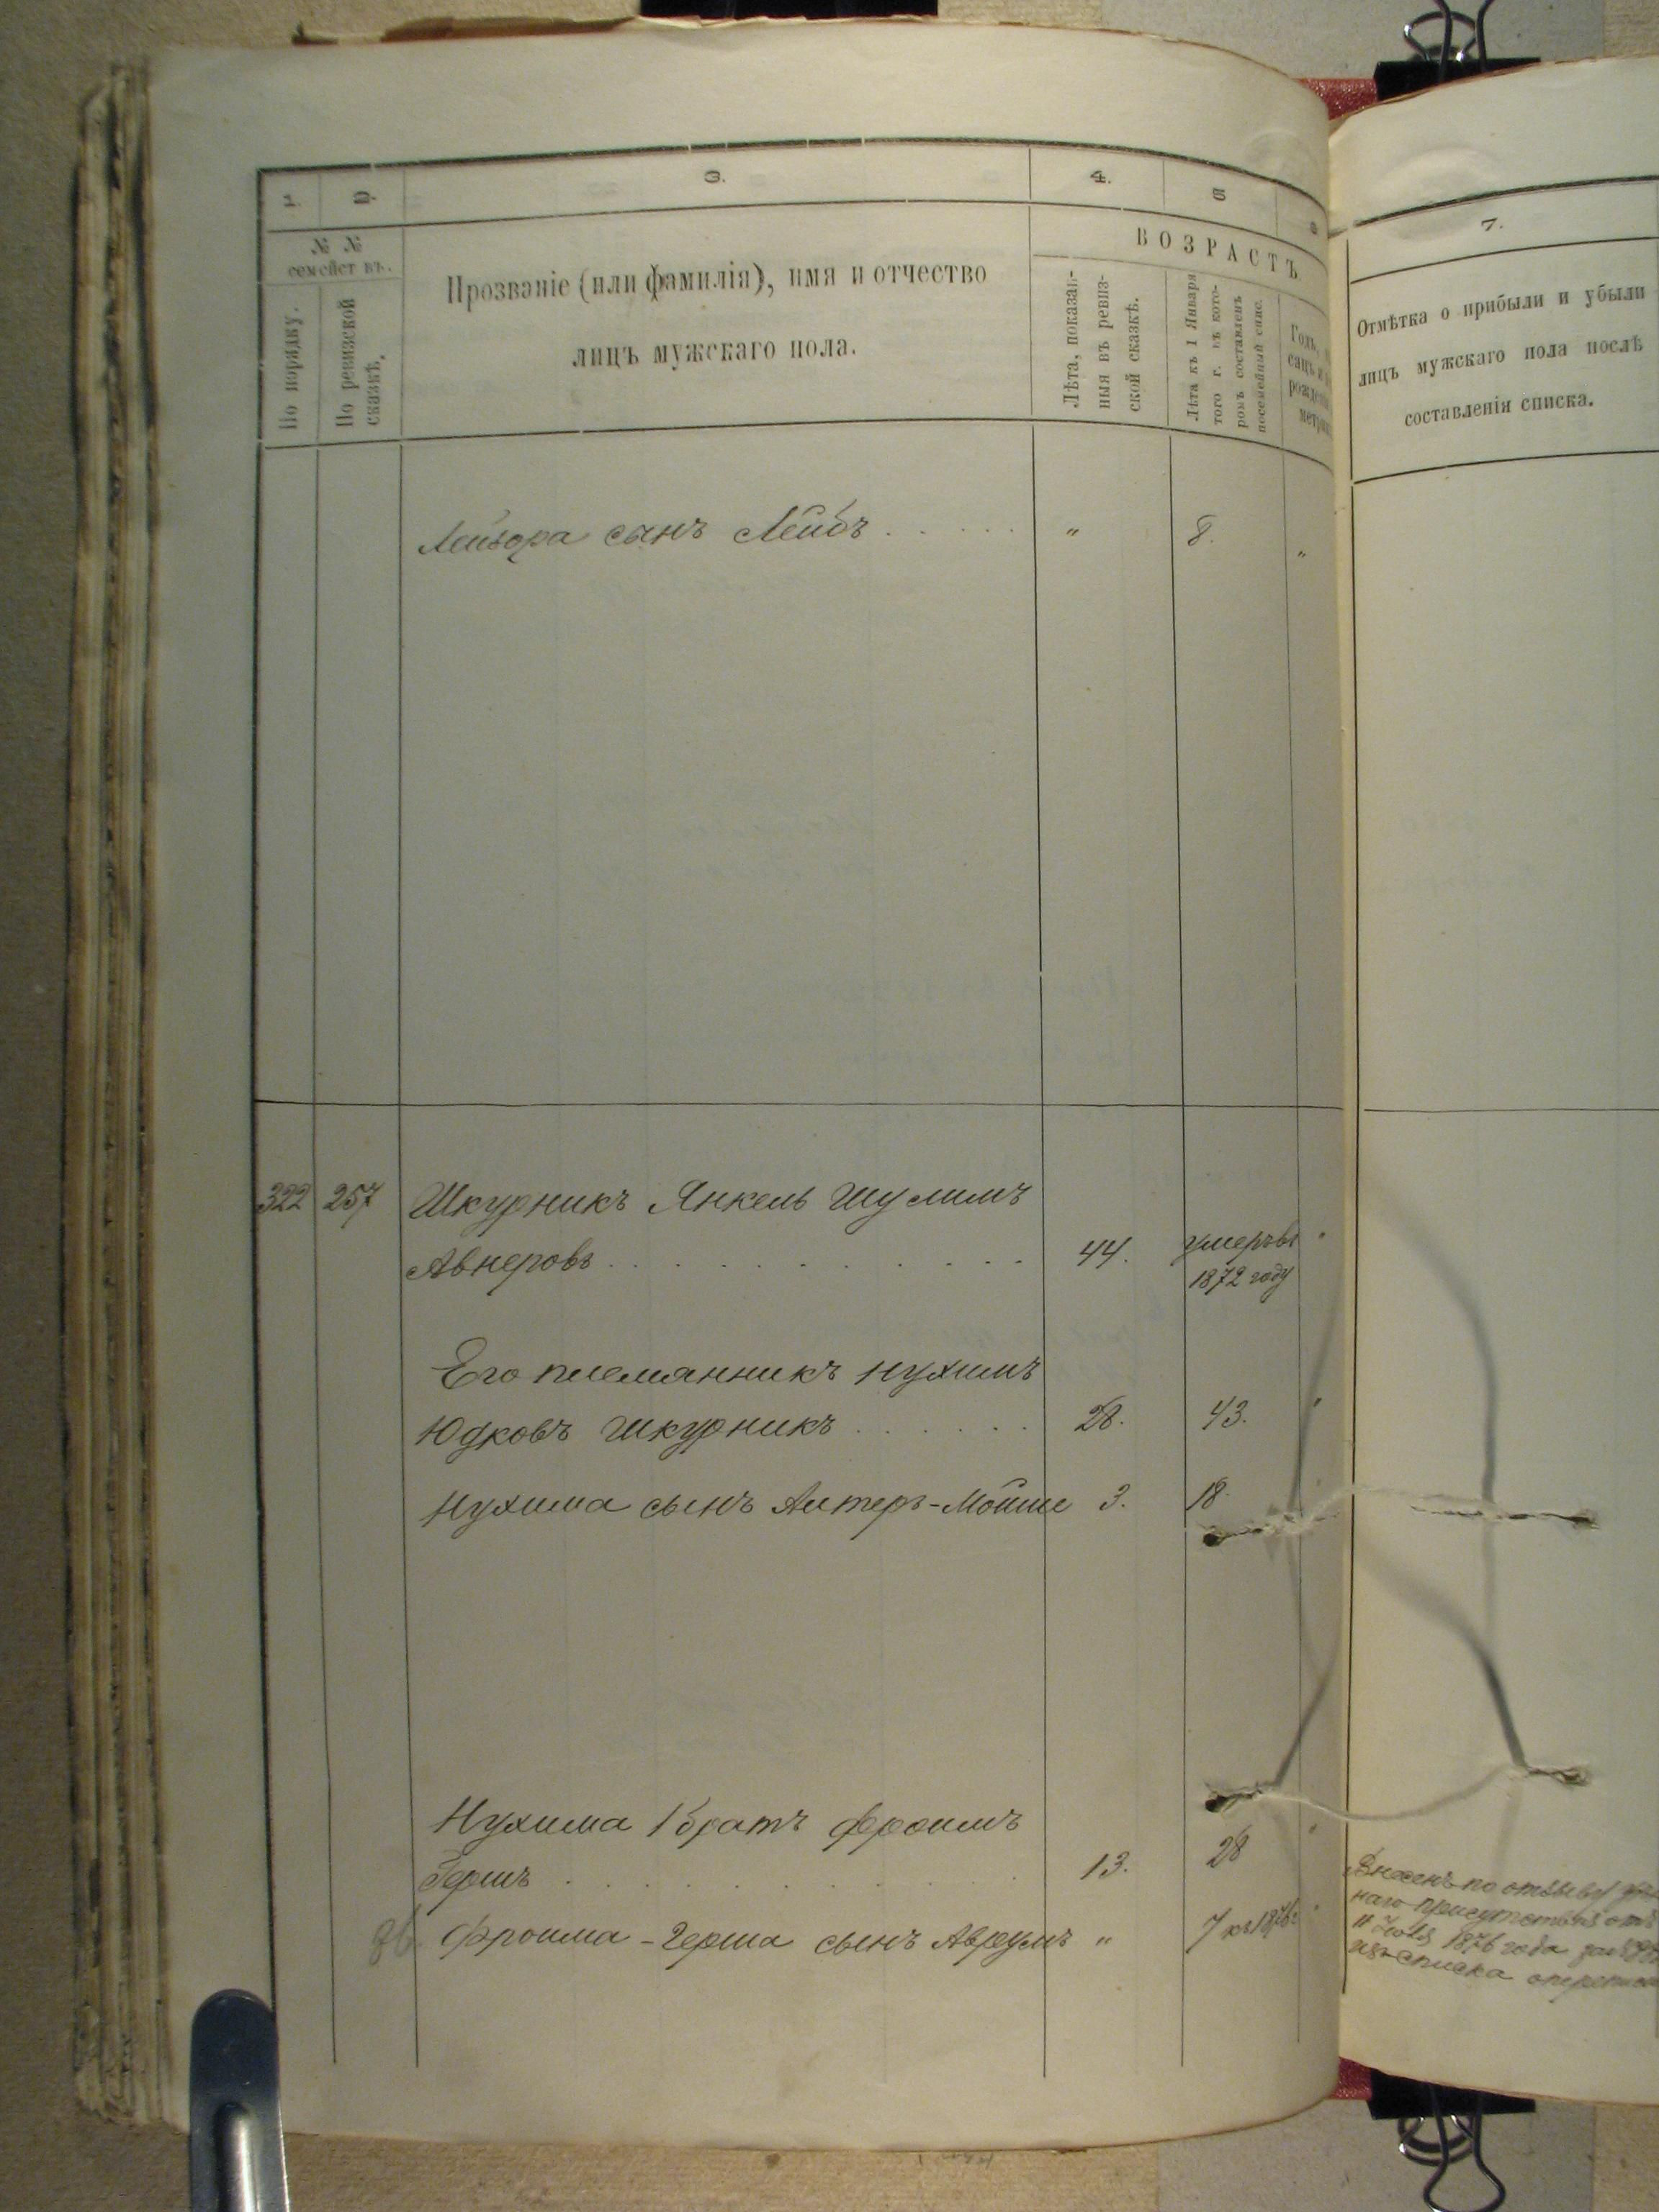 1. 2. 3. 4. 5 6
№ № семействъ.
По порядку.
По ревизской сказкѣ.
Прозваніе (или фамилія), имя и отчество
лицъ мужскаго пола.
ВОЗРАСТЪ
Лѣта, показан-
ныя въ ревиз-
ской сказкѣ.
Лѣта къ 1 Января
того г. въ кото-
ромъ составленъ
посемейный спис.
Годъ,
рожден
метри
7.
Отмѣтка о прибыли и убыли
лицъ мужскаго пола послѣ
составленія списка.
Лейзора сынъ Лейбъ . . . . . " 8. "
322 257 Шкурникъ Янкель Шулимъ
Авнеровъ . . . . . . . . . . . . 44. умеръ въ
1872 году
Его племянникъ Нухимъ
Юдковъ Шкурникъ . . . . . . 28. 43. "
Нухима сынъ Алтеръ-Мойше 3. 18. "
Нухима 1 братъ Фроимъ
Гершъ . . . . . . . . . . . . 13. 28 "
Фроима-Герша сынъ Аврумъ " 7 къ 1876 г "
Внесенъ по отзыву
наго присутствія отъ
11 Іюля 1876 года за №
изъ списка